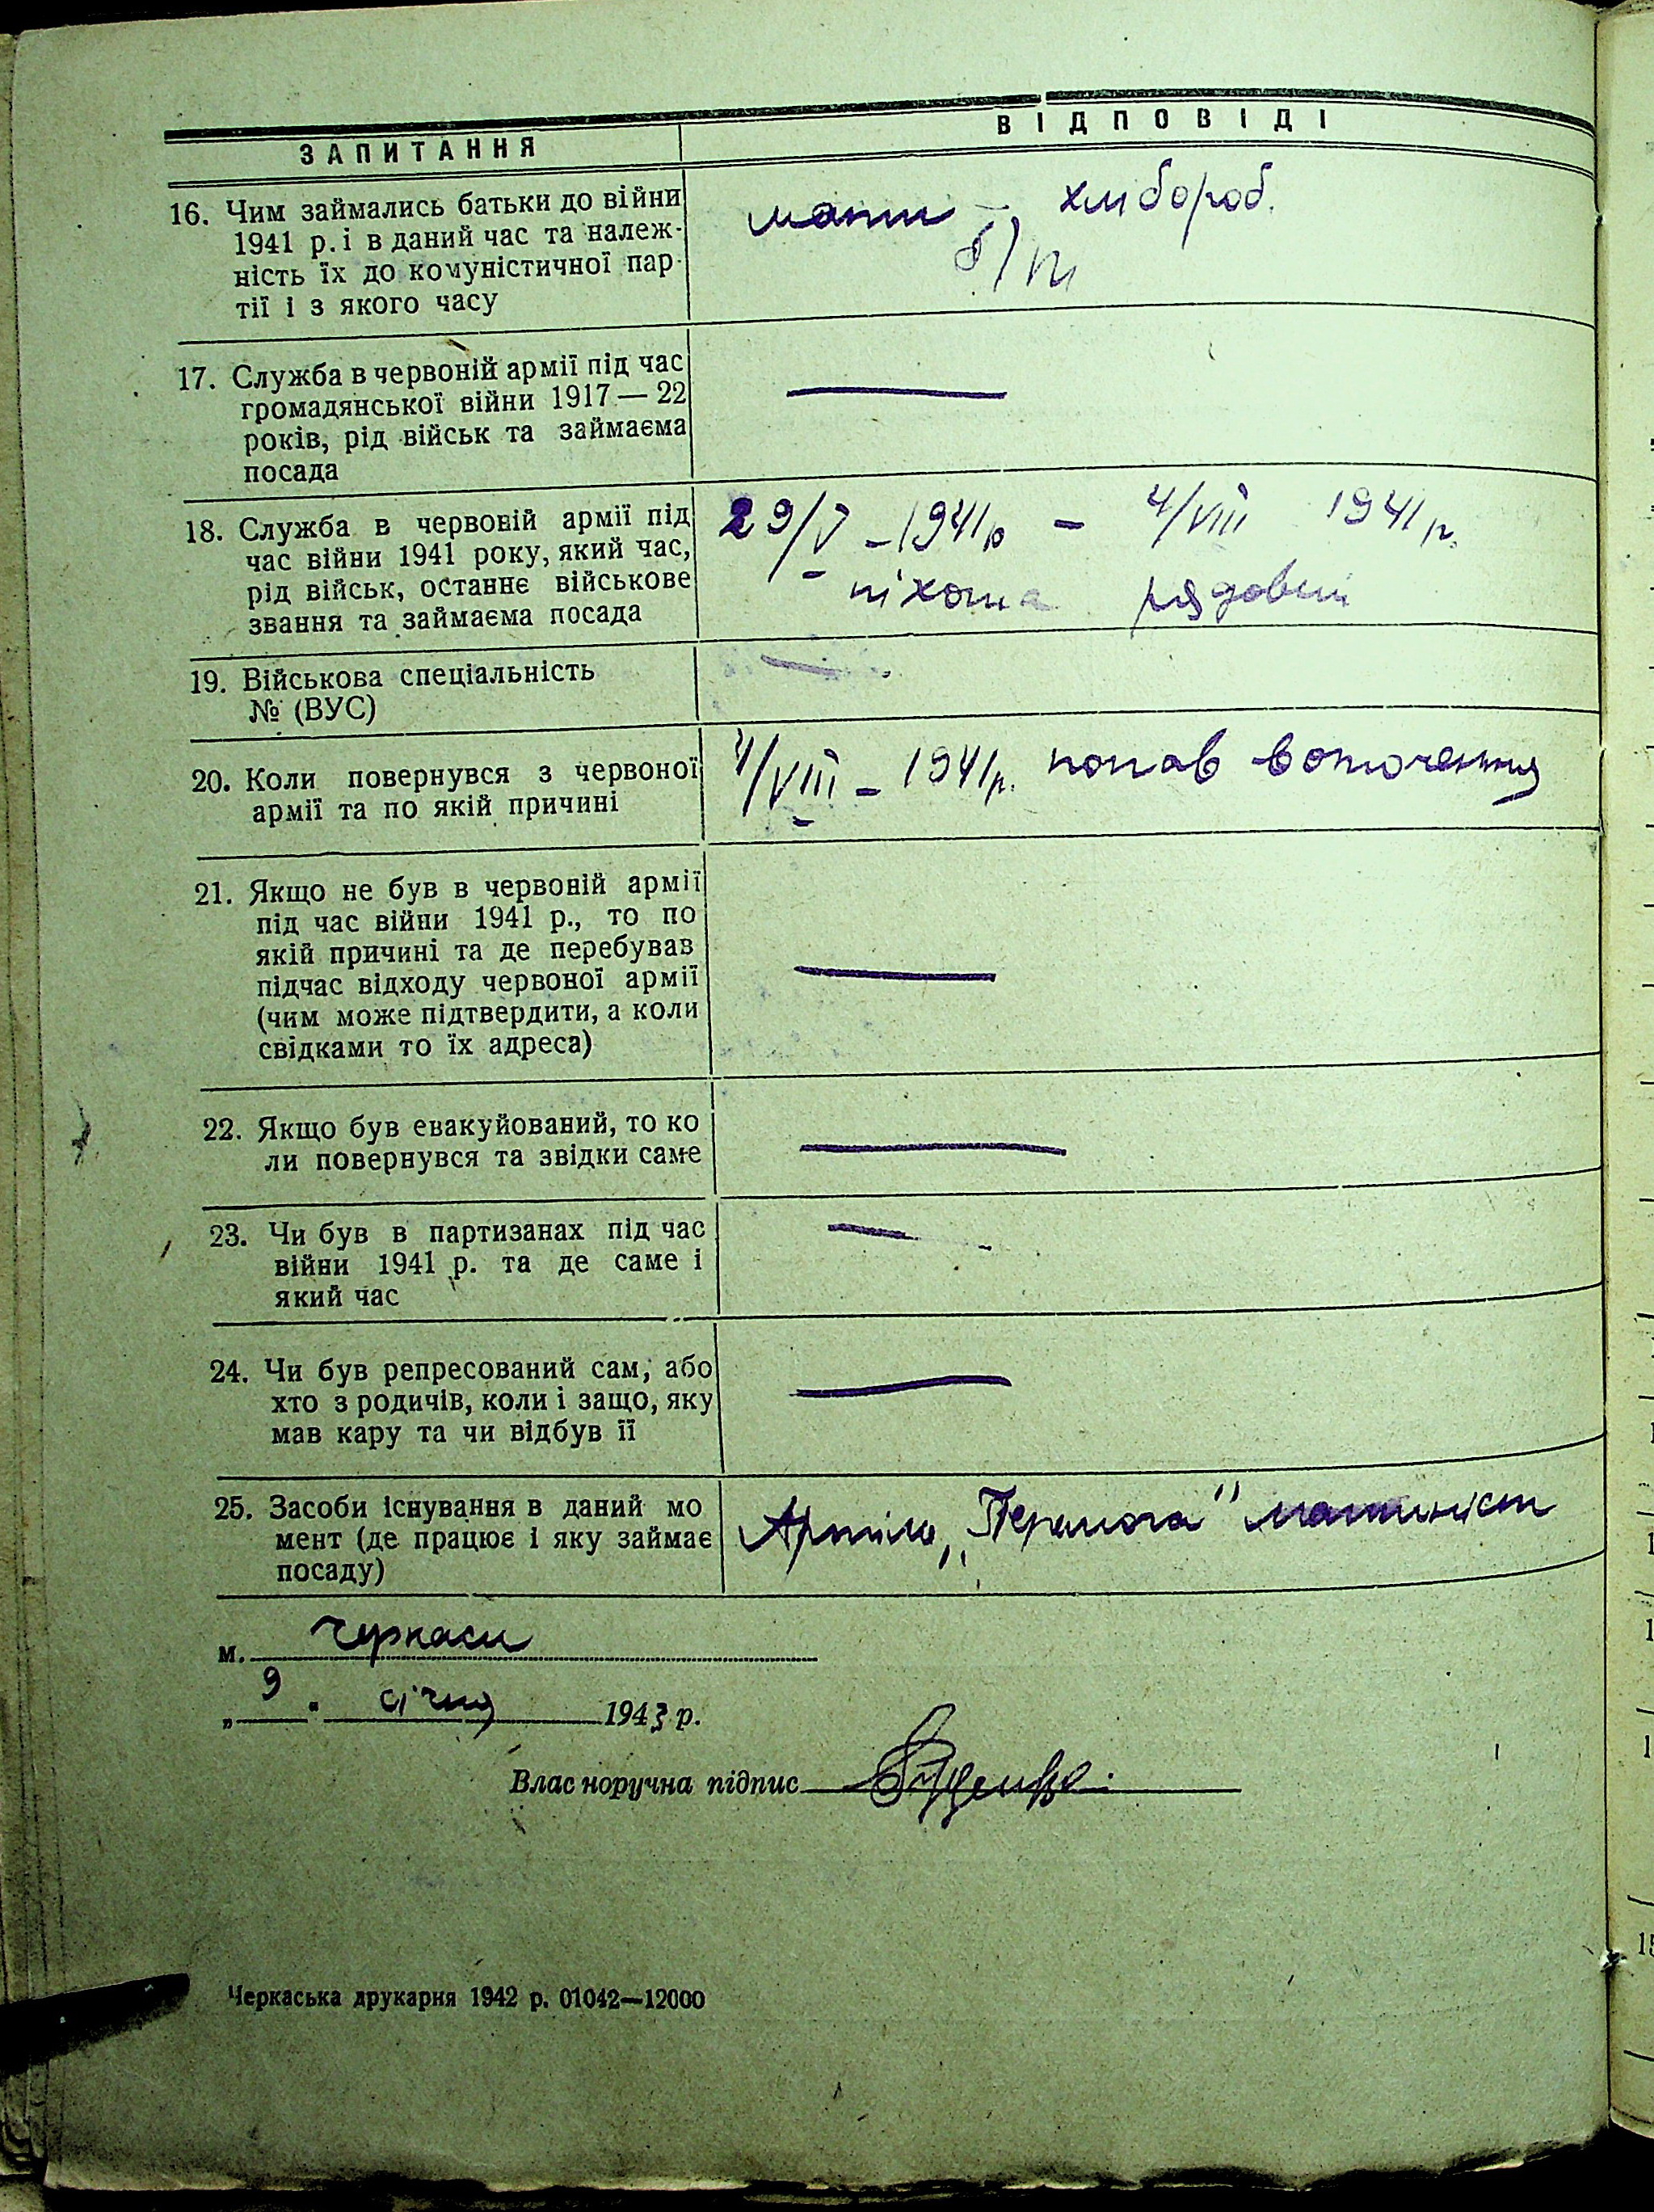 ЗАПИТАННЯ
ВІДПОВІДІ
16. Чим займались батьки до війни
1941 р. і в даний час та належ-
ність їх до комуністичної пар-
тії і з якого часу
мати – хлібороб.
б/п
17. Служба в червоній армії під час
громадянської війни 1917 — 22
років, рід військ та займаєма
посада
18. Служба в червовій армії під
час війни 1941 року, який час,
рід військ, останнє військове
звання та займаєма посада
29/V – 1941р – 4/VIII 1941р.
піхота рядовий
19. Військова спеціальність
№ (ВУС)
20. Коли повернувся з червоної
армії та по якій причині
4/VIII – 1941р. попав в оточення
21. Якщо не був в червоній армії
під час війни 1941 р., то по
якій причині та де перебував
підчас відходу червоної армії
(чим може підтвердити, а коли
свідками то їх адреса)
22. Якщо був евакуйований, то ко
ли повернувся та звідки саме
23. Чи був в партизанах під час
війни 1941 р. та де саме і
який час
24. Чи був репресований сам, або
хто з родичів, коли і защо, яку
мав кару та чи відбув її
25. Засоби існування в даний мо
мент (де працює і яку займає
посаду)
Артіль „Перемога" машиніст
м. Черкаси
„ 9 " січня 1943 р.
Власноручна підпис
Черкаська друкарня 1942 р. 01042—12000